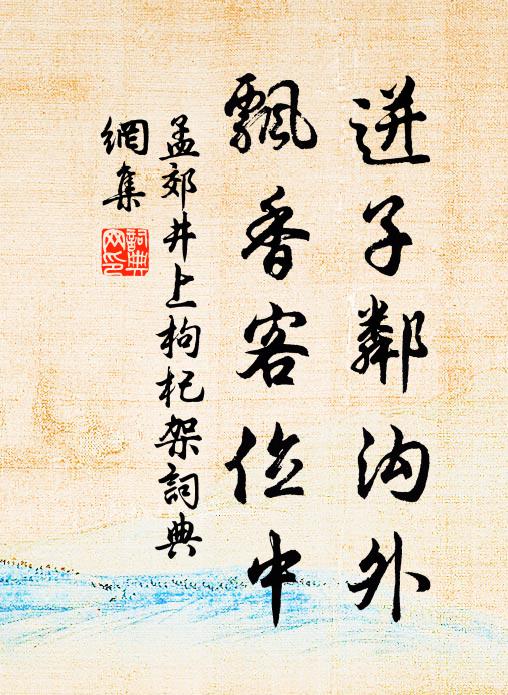 迸子鄰沟外
飄香客位中
孟郊井上枸杞架詞典
網集
詞典
网印